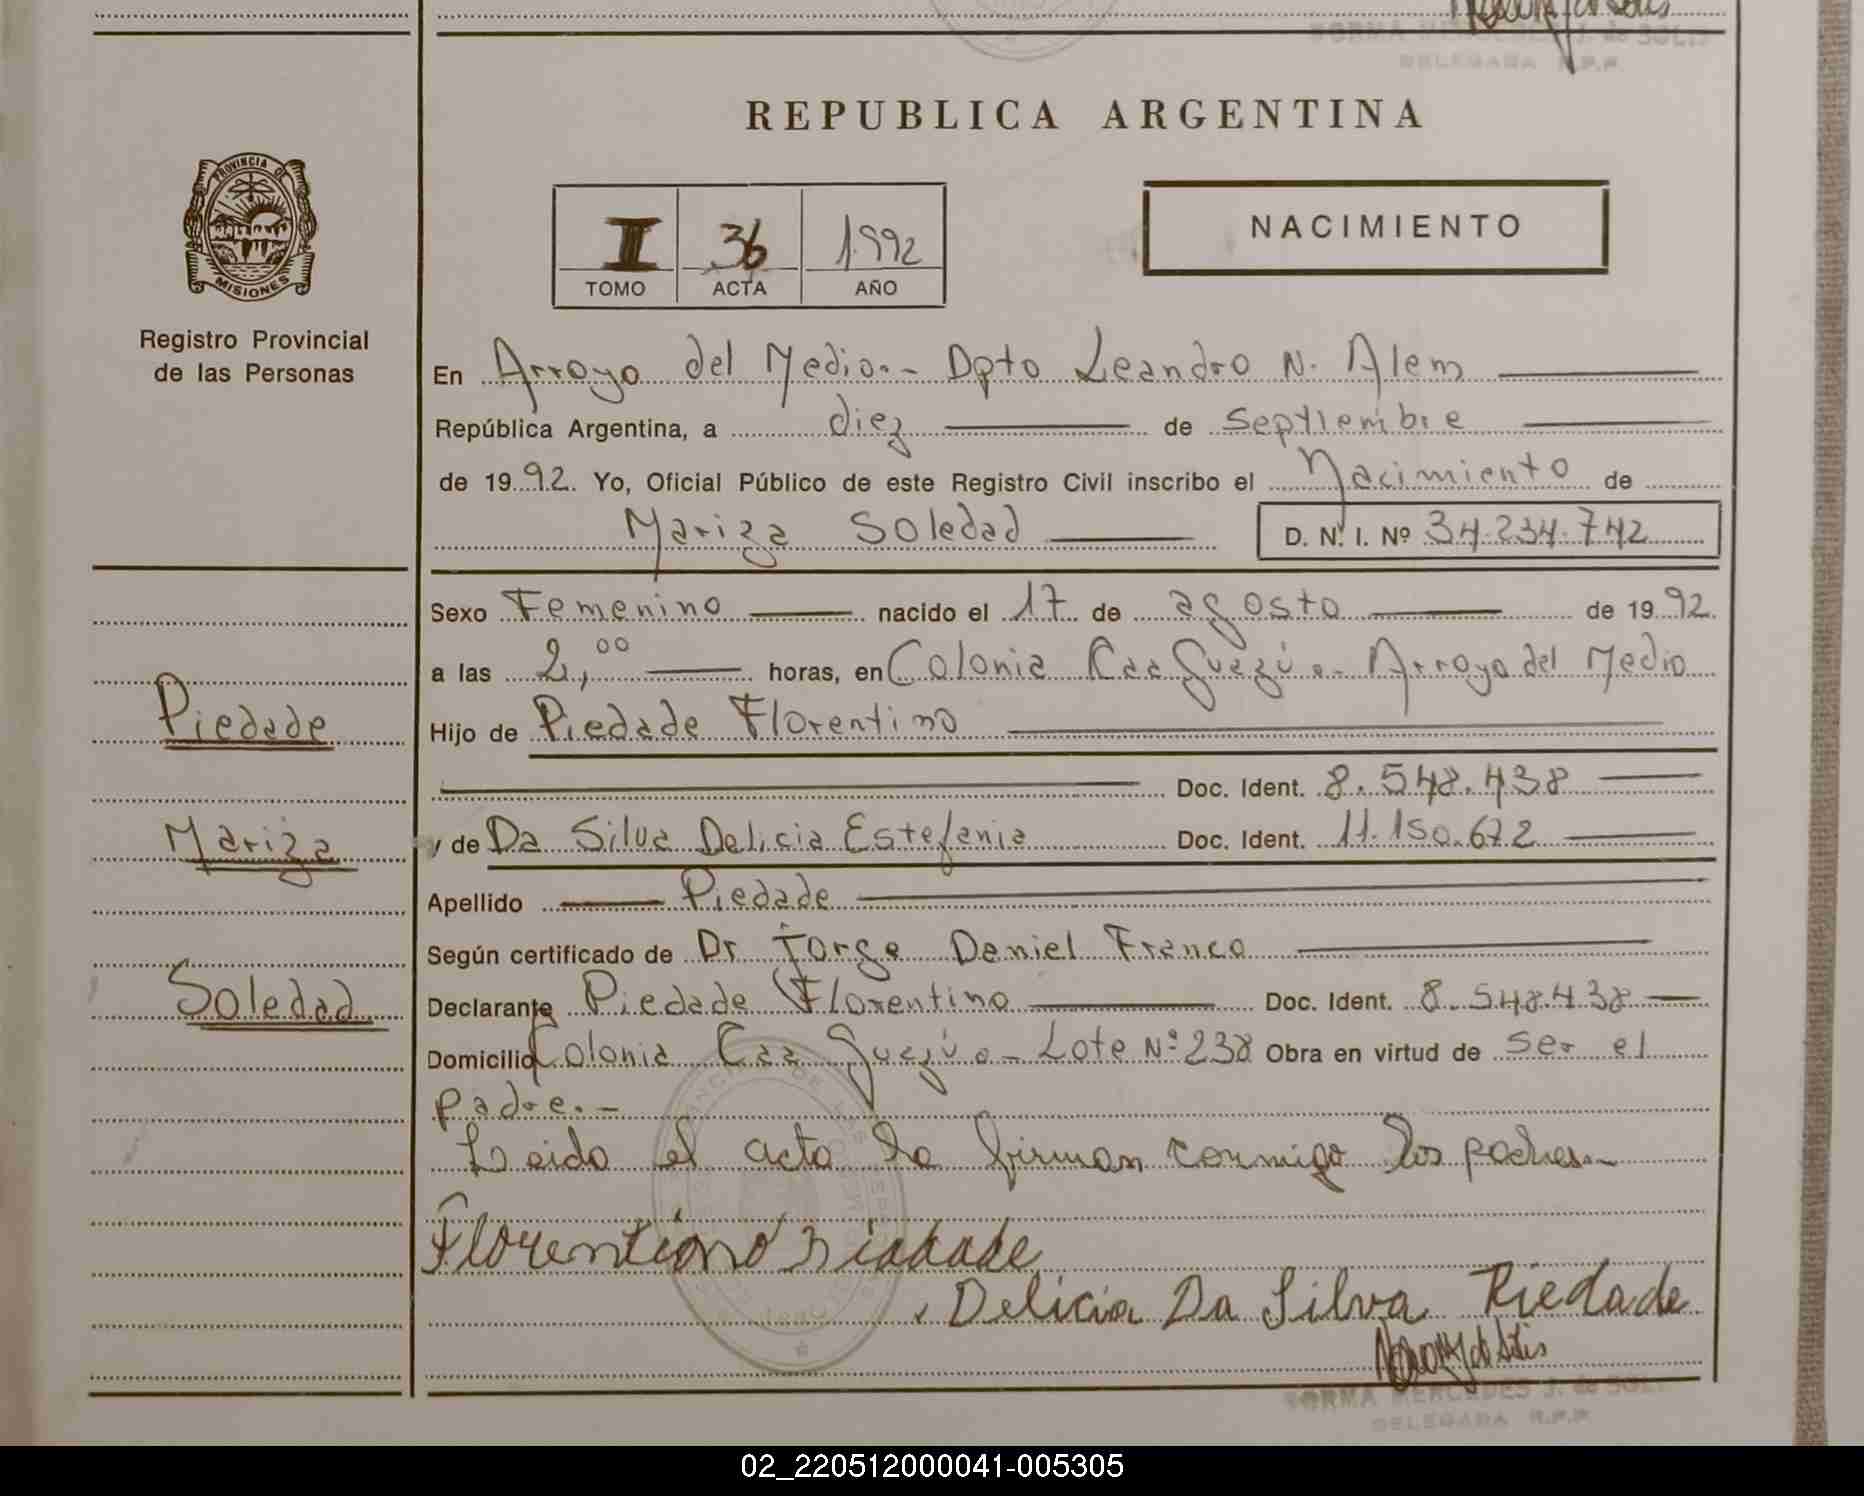 NORMA MERCEDES J. de SOLIS
DELEGADA R.P.P.
REPUBLICA ARGENTINA
PROVINCIA DE
MISIONES
Registro Provincial
de las Personas
II 36 1992
TOMO ACTA AÑO
NACIMIENTO
En Arroyo del Medio.- Dpto Leandro N. Alem
República Argentina, a diez de septiembre
de 1992. Yo, Oficial Público de este Registro Civil inscribo el Nacimiento de
Mariza Soledad D. N. I. Nº 34.234.742
Sexo Femenino nacido el 17 de agosto de 1992.
a las 2,00 horas, en Colonia Caa Guazú.- Arroyo del Medio
Hijo de Piedade Florentino
Doc. Ident. 8.548.438
y de Da Silva Delicia Estefania Doc. Ident. 11.150.672
Apellido Piedade
Según certificado de Dr Jorge Daniel Franco
Declarante Piedade Florentino Doc. Ident. 8.548.438
Domicilio Colonia Caa Guazú.- Lote Nº 238 Obra en virtud de ser el
padre.-
Leido el acta la firman conmigo los padres.-
Piedade
Mariza
Soledad
Florentino Piedade
Delicia Da Silva Piedade
NORMA MERCEDES J. de SOLIS
DELEGADA R.P.P.
02_220512000041-005305